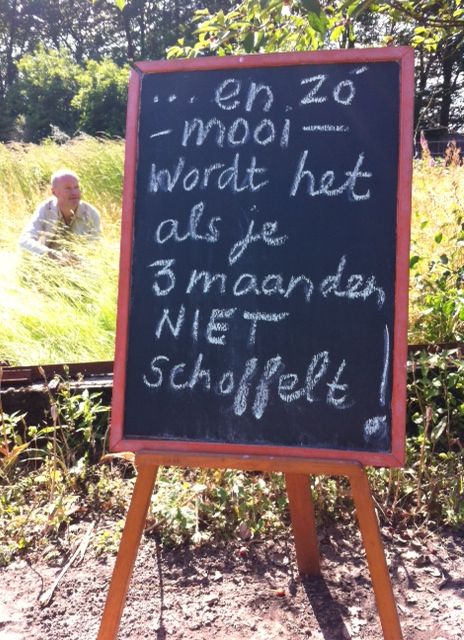 ... en zó
- mooi -
wordt het
als je
3 maanden
NIET
schoffelt!